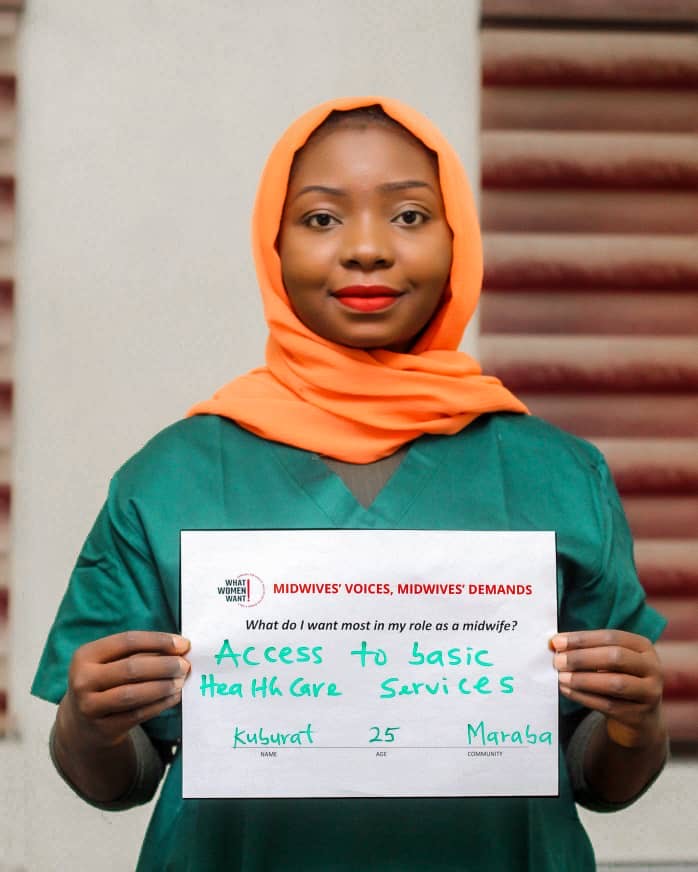 WHAT
WOMEN
WANT!
MIDWIVES' VOICES, MIDWIVES' DEMANDS
What do I want most in my role as a midwife?
Access to basic
HeaHh Care Services
Kuburat 25 Maraba
NAME AGE COMMUNITY